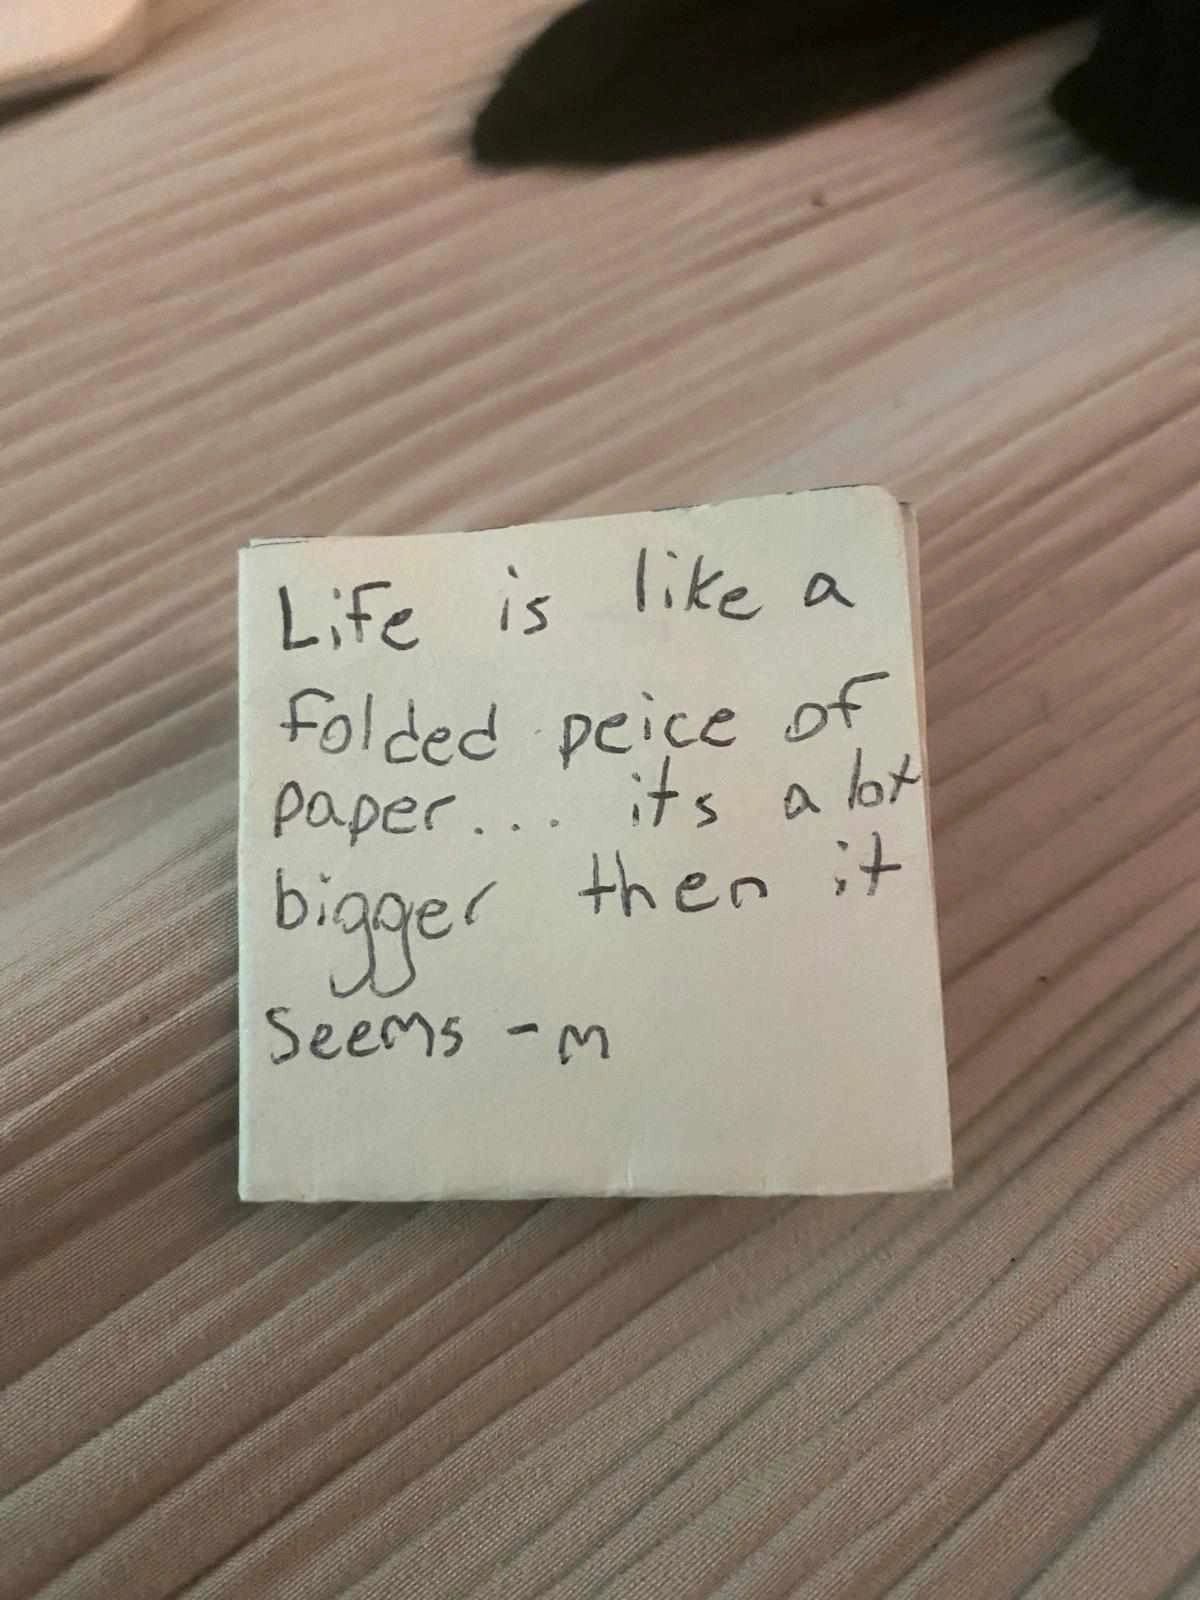 Life is like a
folded peice of
paper... its a lot
bigger then it
seems - m